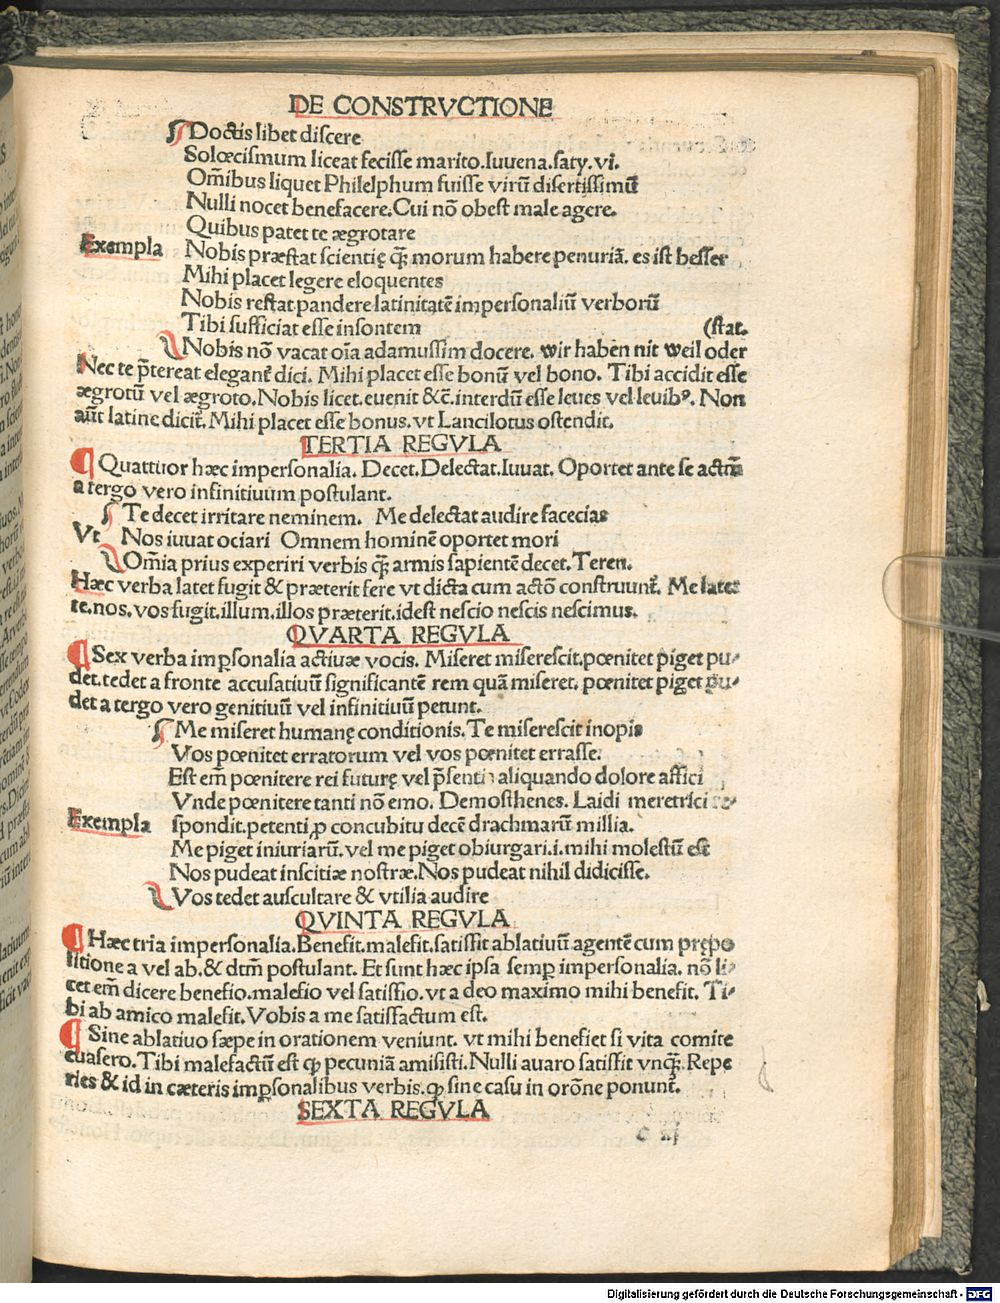 DE CONSTRVCTIONE
Doctis libet discere
Solœcismum liceat fecisse marito. Iuuena. saty. vi.
Om̄ibus liquet Philelphum fuisse virū disertissimū
Nulli nocet benefacere. Cui nō obest male agere.
Quibus patet te ægrotare
Exempla Nobis præstat scientię q̄ morum habere penuriā. es ist besser
Mihi placet legere eloquentes
Nobis restat pandere latinitatē impersonaliū verborū
Tibi sufficiat esse insontem (stat.
Nobis nō vacat oīa adamussim docere. wir haben nit weil oder
Nec te p̄tereat elegant̄ dici. Mihi placet esse bonū vel bono. Tibi accidit esse
ægrotū vel ægroto. Nobis licet. euenit &c̄. interdū esse leues vel leuibꝰ. Non
aūt latine dicit᷑. Mihi placet esse bonus. vt Lancilotus ostendit.
TERTIA REGVLA
Quattuor hæc impersonalia. Decet. Delectat. Iuuat. Oportet ante se actm̄
a tergo vero infinitiuum postulant.
Te decet irritare neminem. Me delectat audire facecias
Vt Nos iuuat ociari Omnem hominē oportet mori
Om̄ia prius experiri verbis q̄ armis sapientē decet. Teren.
Hæc verba latet fugit & præterit fere vt dicta cum actō construunt᷑. Me latet
te. nos. vos fugit. illum. illos præterit. idest nescio nescis nescimus.
QVARTA REGVLA
Sex verba imꝑsonalia actiuæ vocis. Miseret miserescit. pœnitet piget pu⸗
det. tedet a fronte accusatiuū significantē rem quā miseret. pœnitet piget pu⸗
det a tergo vero genitiuū vel infinitiuū petunt.
Me miseret humanę conditionis. Te miserescit inopis
Vos pœnitet erratorum vel vos pœnitet errasse.
Est em̄ pœnitere rei futurę vel p̄sentis aliquando dolore affici
Vnde pœnitere tanti nō emo. Demosthenes. Laidi meretrici re⸗
Exempla spondit. petenti ꝓ concubitu decē drachmarū millia.
Me piget iniuriarū. vel me piget obiurgari. i. mihi molestū est
Nos pudeat inscitiæ nostræ. Nos pudeat nihil didicisse.
Vos tedet auscultare & vtilia audire
QVINTA REGVLA
Hæc tria impersonalia. Benefit. malefit. satisfit ablatiuū agentē cum prępo
sitione a vel ab. & dtm̄ postulant. Et sunt hæc ipsa semꝑ impersonalia. nō li⸗
cet em̄ dicere benefio. malefio vel satisfio. vt a deo maximo mihi benefit. Ti⸗
bi ab amico malefit. Vobis a me satisfactum est.
Sine ablatiuo sæpe in orationem veniunt. vt mihi benefiet si vita comite
euasero. Tibi malefactū est ꝙ pecuniā amisisti. Nulli auaro satisfit vnq̄. Repe
ries & id in cæteris imꝑsonalibus verbis. ꝙ sine casu in orōne ponunt᷑.
SEXTA REGVLA
Digitalisierung gefördert durch die Deutsche Forschungsgemeinschaft - DFG